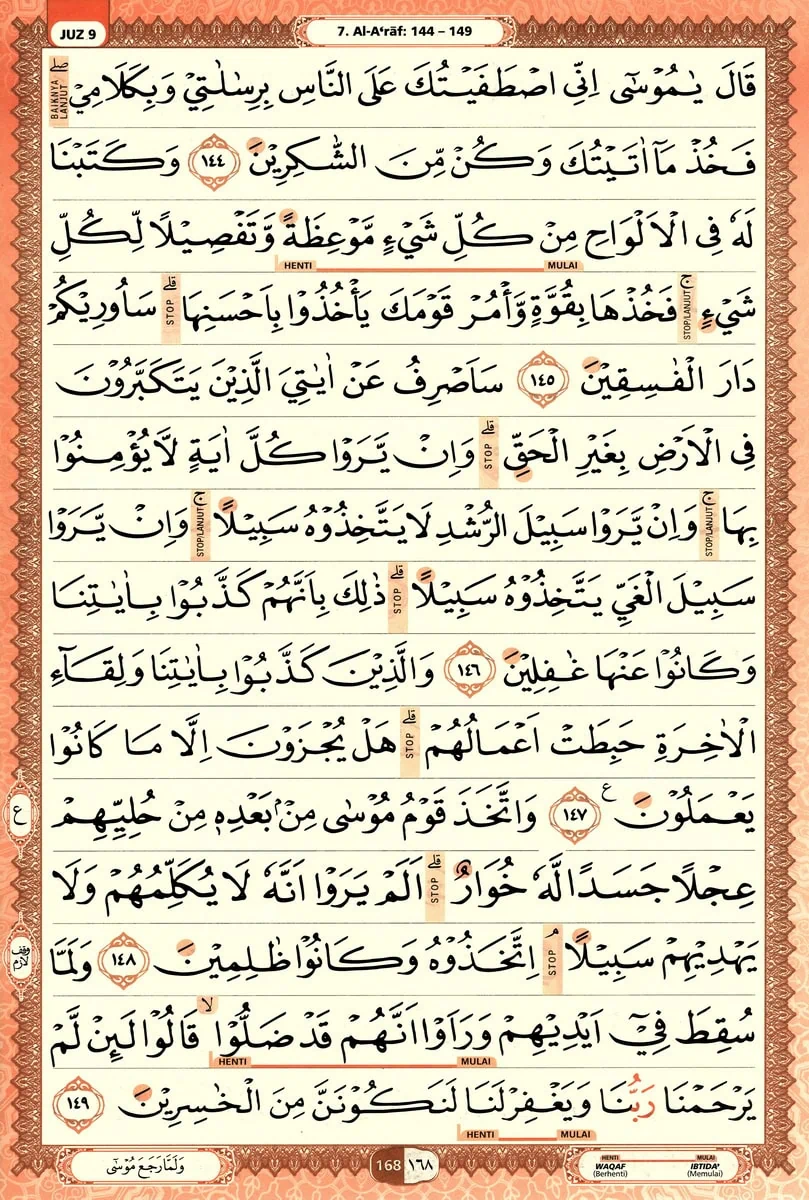 JUZ 9
7. Al-A‘rāf: 144 – 149
قَالَ يٰمُوْسٰٓى اِنِّى اصْطَفَيْتُكَ عَلَى النَّاسِ بِرِسٰلٰتِيْ وَبِكَلَامِيْ ۖ BAIKNYA LANJUT
فَخُذْ مَآ اٰتَيْتُكَ وَكُنْ مِّنَ الشّٰكِرِيْنَ ١٤٤ وَكَتَبْنَا
لَهٗ فِى الْاَلْوَاحِ مِنْ كُلِّ شَيْءٍ مَّوْعِظَةً وَّتَفْصِيْلًا لِّكُلِّ
HENTI MULAI
شَيْءٍ ۚ STOP/LANJUT فَخُذْهَا بِقُوَّةٍ وَّأْمُرْ قَوْمَكَ يَأْخُذُوْا بِاَحْسَنِهَا ۗ STOP سَاُورِيْكُمْ
دَارَ الْفٰسِقِيْنَ ١٤٥ سَاَصْرِفُ عَنْ اٰيٰتِيَ الَّذِيْنَ يَتَكَبَّرُوْنَ
فِى الْاَرْضِ بِغَيْرِ الْحَقِّ ۗ STOP وَاِنْ يَّرَوْا كُلَّ اٰيَةٍ لَّا يُؤْمِنُوْا
بِهَا ۚ STOP/LANJUT وَاِنْ يَّرَوْا سَبِيْلَ الرُّشْدِ لَا يَتَّخِذُوْهُ سَبِيْلًا ۚ STOP/LANJUT وَاِنْ يَّرَوْا
سَبِيْلَ الْغَيِّ يَتَّخِذُوْهُ سَبِيْلًا ۗ STOP ذٰلِكَ بِاَنَّهُمْ كَذَّبُوْا بِاٰيٰتِنَا
وَكَانُوْا عَنْهَا غٰفِلِيْنَ ١٤٦ وَالَّذِيْنَ كَذَّبُوْا بِاٰيٰتِنَا وَلِقَاۤءِ
الْاٰخِرَةِ حَبِطَتْ اَعْمَالُهُمْ ۗ STOP هَلْ يُجْزَوْنَ اِلَّا مَا كَانُوْا
يَعْمَلُوْنَ ࣖ ١٤٧ وَاتَّخَذَ قَوْمُ مُوْسٰى مِنْۢ بَعْدِهٖ مِنْ حُلِيِّهِمْ
ع
عِجْلًا جَسَدًا لَّهٗ خُوَارٌ ۗ STOP اَلَمْ يَرَوْا اَنَّهٗ لَا يُكَلِّمُهُمْ وَلَا
يَهْدِيْهِمْ سَبِيْلًا ۘ STOP اِتَّخَذُوْهُ وَكَانُوْا ظٰلِمِيْنَ ١٤٨ وَلَمَّا
وقف لازم
سُقِطَ فِيْٓ اَيْدِيْهِمْ وَرَاَوْا اَنَّهُمْ قَدْ ضَلُّوْا ۙ قَالُوْا لَىِٕنْ لَّمْ
HENTI MULAI
يَرْحَمْنَا رَبُّنَا وَيَغْفِرْ لَنَا لَنَكُوْنَنَّ مِنَ الْخٰسِرِيْنَ ١٤٩
HENTI MULAI
وَلَمَّا رَجَعَ مُوْسٰٓى
168 ١٦٨
HENTI MULAI
WAQAF IBTIDA'
(Berhenti) (Memulai)